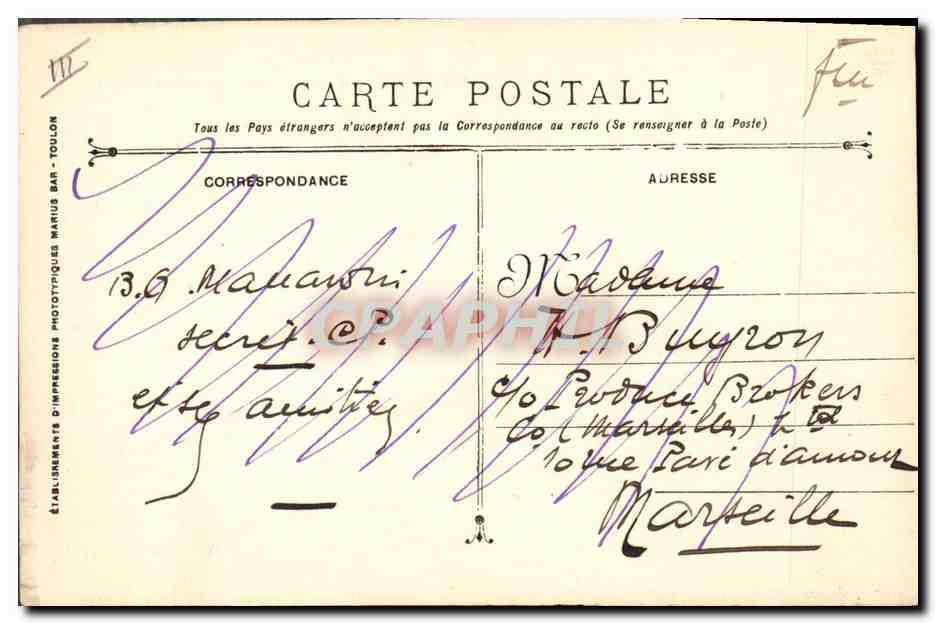 III
CARTE POSTALE
Tous les Pays étrangers n'acceptent pas la Correspondance au recto (Se renseigner à la Poste)
CORRESPONDANCE
ADRESSE
ÉTABLISSEMENTS D'IMPRESSIONS PHOTOTYPIQUES MARIUS BAR - TOULON
B.G
et ses amitiés
Madame
Buyron
c/o Produce Brokers
Co (Marseilles) Ltd
10 rue Pavé d'amour
Marseille
CPAPHIL